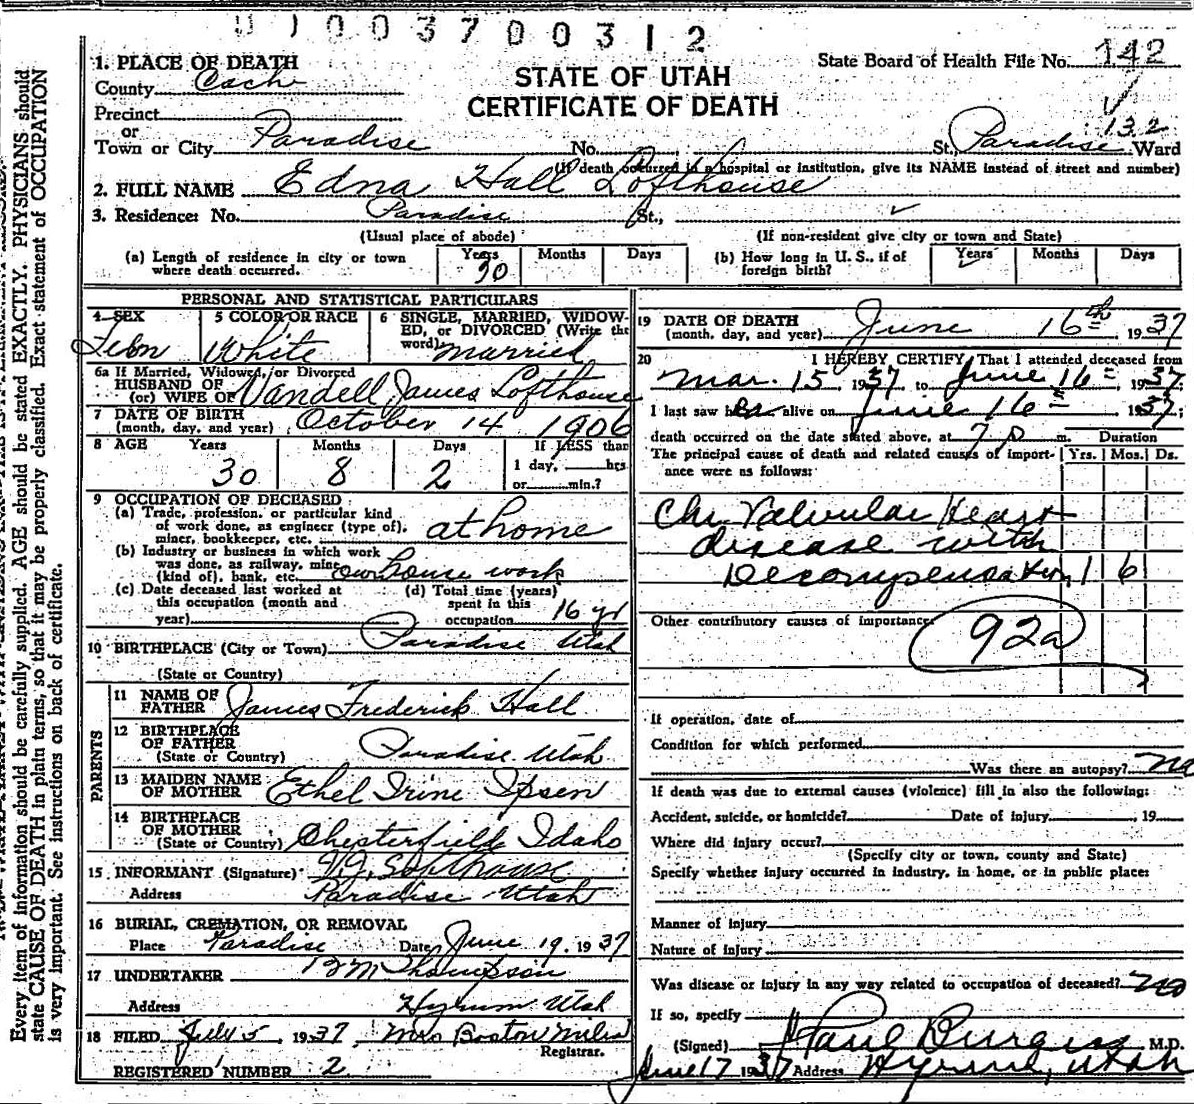 0 1 0 0 3 7 0 0 3 1 2
1. PLACE OF DEATH
County Cach
STATE OF UTAH
CERTIFICATE OF DEATH
State Board of Health File No. 142
Precinct
or
Town or City Paradise No. St., Paradise 132 Ward
(If death occurred in a hospital or institution, give its NAME instead of street and number)
2. FULL NAME Edna Hall Lofthouse
3. Residence: No. Paradise St.,
(Usual place of abode) (If non-resident give city or town and State)
(a) Length of residence in city or town where death occurred. Years 30 Months Days
(b) How long in U. S., if of foreign birth? Years Months Days
PERSONAL AND STATISTICAL PARTICULARS
4 SEX Fem
5 COLOR OR RACE White
6 SINGLE, MARRIED, WIDOWED, or DIVORCED (Write the word) married
6a If Married, Widowed, or Divorced
HUSBAND OF
(or) WIFE OF Vandell James Lofthouse
7 DATE OF BIRTH
(month, day, and year) October 14 1906
8 AGE Years Months Days If LESS than
30 8 2 1 day, hrs
or min.?
9 OCCUPATION OF DECEASED:
(a) Trade, profession, or particular kind
of work done, as engineer (type of),
miner, bookkeeper, etc. at home
(b) Industry or business in which work
was done, as railway, mine
(kind of), bank, etc. own house work
(c) Date deceased last worked at
this occupation (month and
year)
(d) Total time (years)
spent in this
occupation 16 yr
10 BIRTHPLACE (City or Town) Paradise Utah
(State or Country)
PARENTS
11 NAME OF
FATHER James Frederick Hall
12 BIRTHPLACE
OF FATHER
(State or Country) Paradise Utah
13 MAIDEN NAME
OF MOTHER Ethel Irine Ipsen
14 BIRTHPLACE
OF MOTHER
(State or Country) Chesterfield Idaho
15 INFORMANT (Signature) V.J. Lofthouse
Address Paradise Utah
16 BURIAL, CREMATION, OR REMOVAL
Place Paradise Date June 19, 1937
17 UNDERTAKER Thompson
Address Hyrum Utah
18 FILED July 5, 1937 Mrs Boston
Registrar.
REGISTERED NUMBER 2
19 DATE OF DEATH
(month, day, and year) June 16th 1937
20 I HEREBY CERTIFY, That I attended deceased from
Mar. 15 1937 to June 16th, 1937;
I last saw her alive on June 16th, 1937;
death occurred on the date stated above, at 7 p m. Duration
The principal cause of death and related causes of importance were as follows: Yrs. Mos. Ds.
Chr. Valvular Heart
disease with
Decompensation 1 6
Other contributory causes of importance:
92a
If operation, date of
Condition for which performed
Was there an autopsy? no
If death was due to external causes (violence) fill in also the following:
Accident, suicide, or homicide? Date of injury , 19
Where did injury occur?
(Specify city or town, county and State)
Specify whether injury occurred in industry, in home, or in public place:
Manner of injury
Nature of injury
Was disease or injury in any way related to occupation of deceased? no
If so, specify
(Signed) Paul Burgess M.D.
June 17 1937 Address Hyrum, Utah
Every item of information should be carefully supplied. AGE should be stated EXACTLY. PHYSICIANS should
state CAUSE OF DEATH in plain terms, so that it may be properly classified. Exact statement of OCCUPATION
is very important. See instructions on back of certificate.